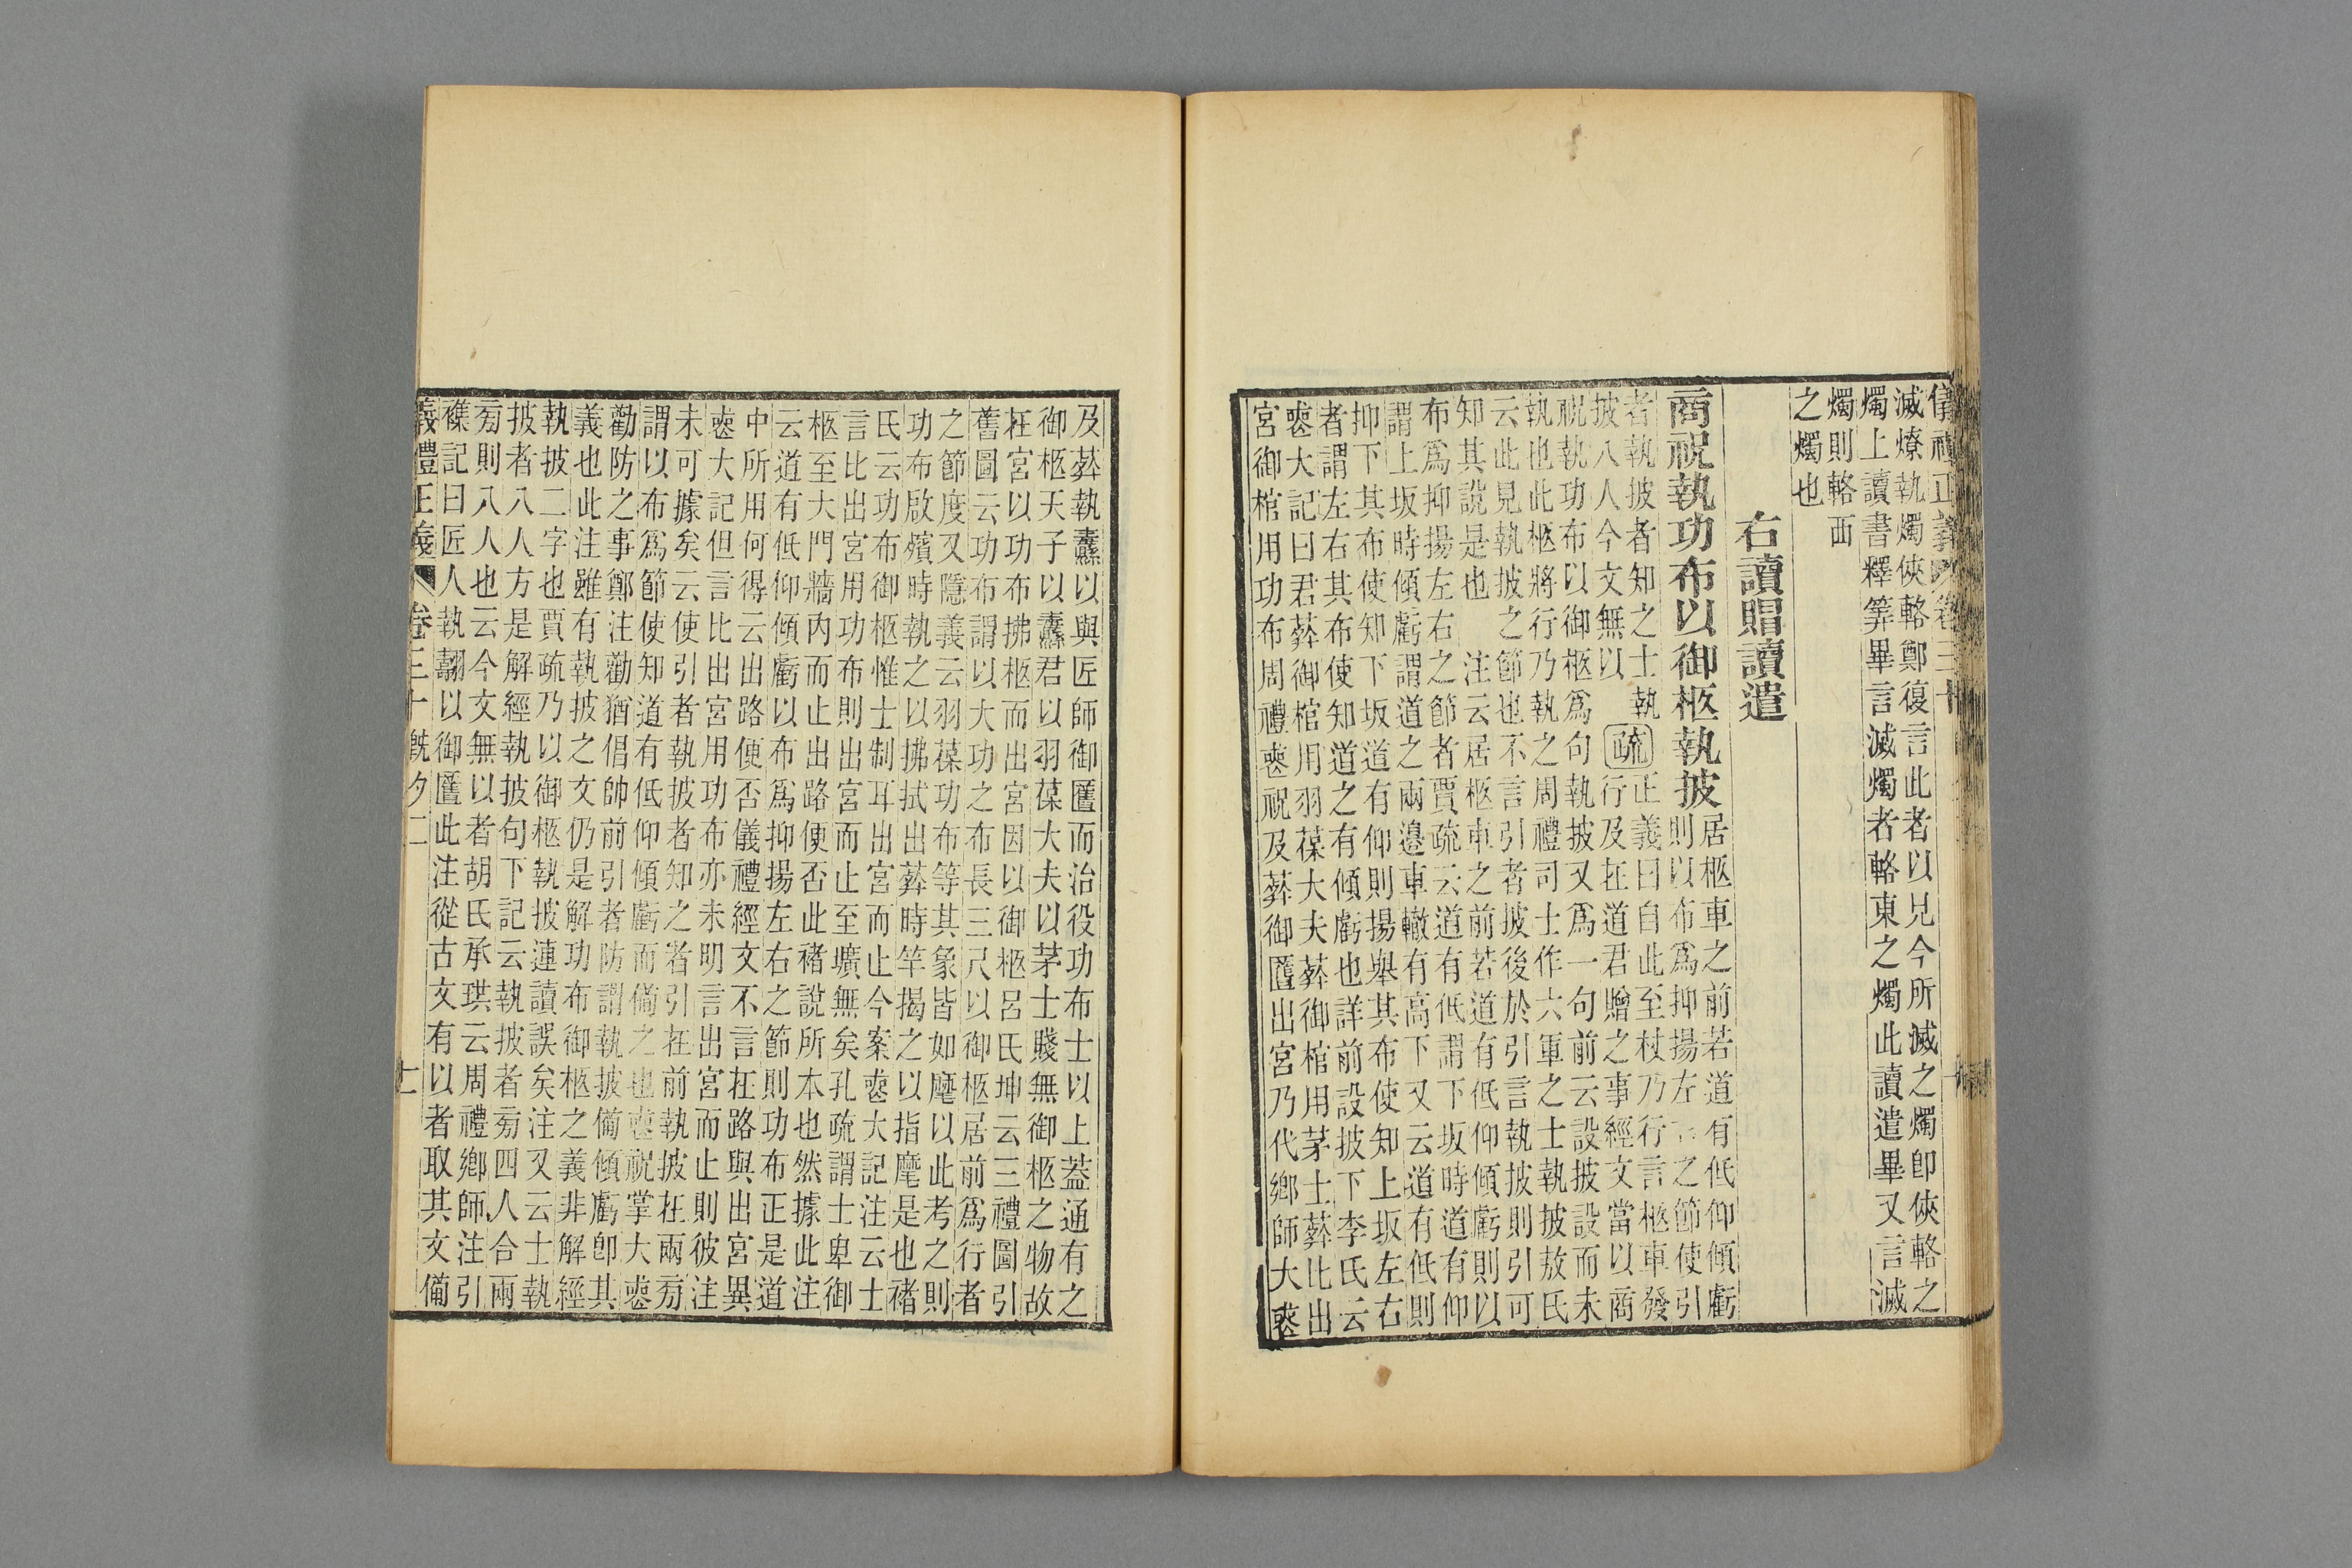 滅燎執燭俠輅鄭復言此者以兄今所滅之燭卽俠輅之
燭上讀書釋筭畢言滅燭者輅東之燭此讀遣畢又言滅
燭則輅西
之燭也
右讀賵讀遣
商祝執功布以御柩執披
居柩車之前若道有低仰傾虧
則以布爲抑揚左右之節使引
者執披者知之士執
披八人今文無以
疏
正義曰自此至杖乃行言柩車發
行及在道君贈之事經文當以商
祝執功布以御柩爲句執披又爲一句前云設披設而未
執也此柩將行乃執之周禮司士作六軍之士執披敖氏
云此見執披之節也不言引者披後於引言執披則引可
知其說是也 注云居柩車之前若道有低仰傾虧則以
布爲抑揚左右之節者賈疏云道有低謂下坂時道有仰
謂上坂時傾虧謂道之兩邉車轍有高下又云道有低則
抑下其布使知下坂道有仰則揚舉其布使知上坂左右
者謂左右其布使知道之有傾虧也詳前設披下李氏云
喪大記曰君葬御棺用羽葆大夫葬御棺用茅士葬比出
宮御棺用功布周禮喪祝及葬御匶出宮乃代鄉師大喪
及葬執纛以與匠師御匶而治役功布士以上蓋通有之
御柩天子以纛君以羽葆大夫以茅士賤無御柩之物故
在宮以功布拂柩而出宮因以御柩呂氏坤云三禮圖引
舊圖云功布謂以大功之布長三尺以御柩居前爲行者
之節度又隱義云羽葆功布等其象皆如麾以此考之則
功布啟殯時執之以拂拭出葬時竿揭之以指麾是也褚
氏云功布御柩惟士制耳出宮而止今案喪大記注云士
言比出宮用功布則出宮而止至壙無矣孔疏謂士卑御
柩至大門牆內而止出路便否此褚說所本也然據此注
云道有低仰傾虧以布爲抑揚左右之節則功布正是道
中所用何得云出路便否儀禮經文不言在路與出宮異
喪大記但言比出宮用功布亦未明言出宮而止則彼注
未可據矣云使引者執披者知之者引在前執披在兩旁
謂以布爲節使知道有低仰傾虧而備之也喪祝掌大喪
勸防之事鄭注勸猶倡帥前引者防謂執披備傾虧卽其
義也此注雖有執披之文仍是解功布御柩之義非解經
執披二字也賈疏乃以御柩執披連讀誤矣注又云士執
披者八人方是解經執披句下記云執披者旁四人合兩
旁則八人也云今文無以者胡氏承珙云周禮鄉師注引
襍記曰匠人執翿以御匶此注從古文有以者取其文備